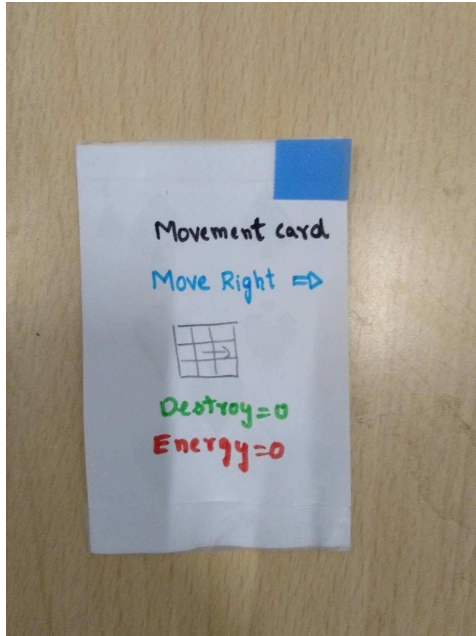 Movement card
Move Right ⇒
Destroy=0
Energy=0